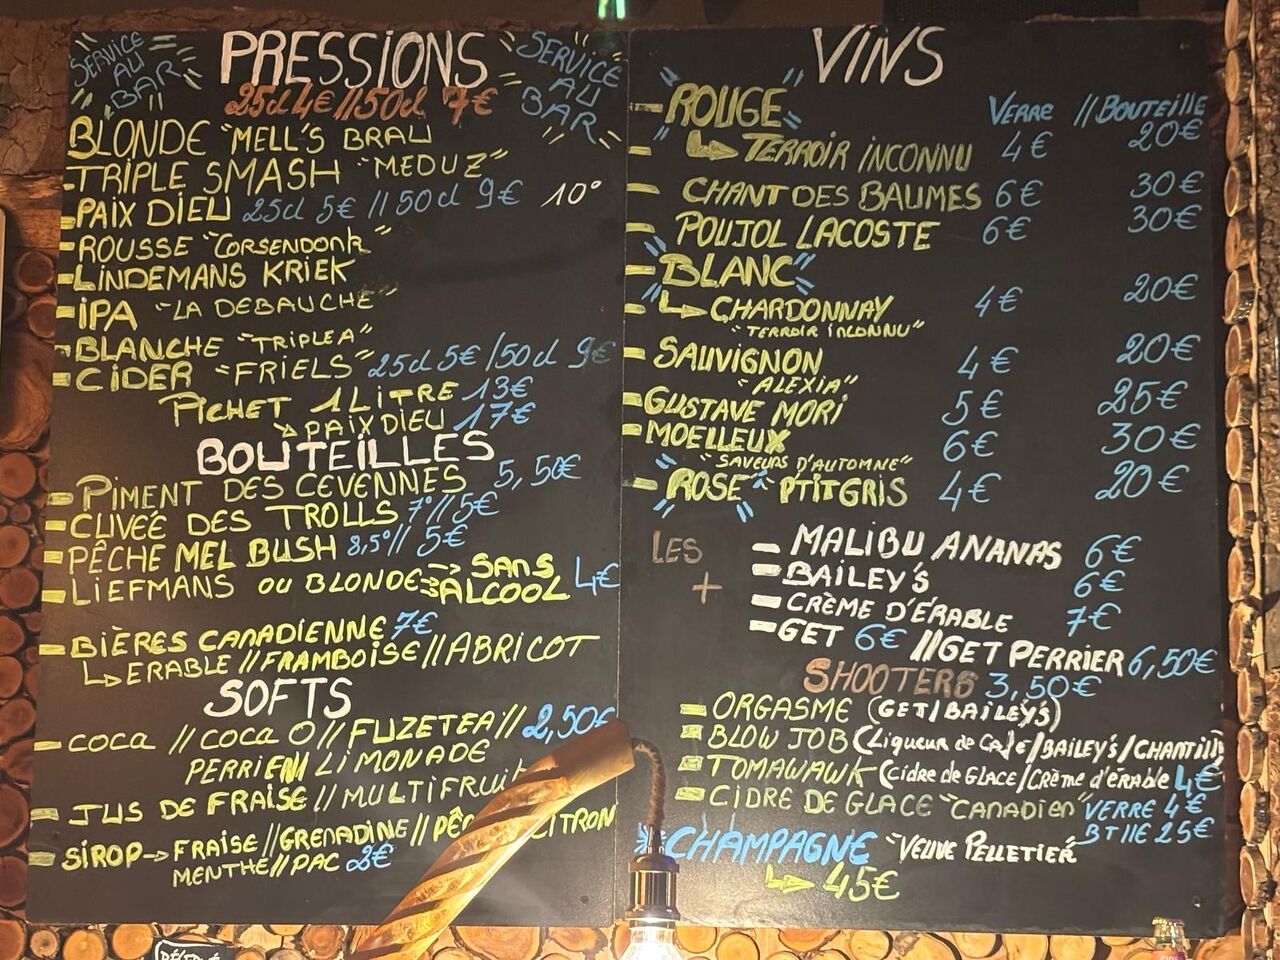 SERVICE AU BAR
PRESSIONS
SERVICE AU BAR
25cl 4€ // 50cl 7€
BLONDE "MELL'S BRAU
- TRIPLE SMASH "MEDUZ"
- PAIX DIEU 25cl 5€ // 50cl 9€ 10°
- ROUSSE "CORSENDONK"
- LINDEMANS KRIEK
- IPA "LA DEBAUCHE"
- BLANCHE "TRIPLE A"
- CIDER "FRIELS" 25cl 5€ / 50cl 9€
PICHET 1 LITRE 13€
↳ PAIX DIEU 17€
BOUTEILLES
- PIMENT DES CEVENNES 5,50€
- CUVEÉ DES TROLLS 7° // 5€
- PÊCHE MEL BUSH 8,5° // 5€
- LIEFMANS OU BLONDE → SANS ALCOOL 4€
- BIÈRES CANADIENNE 7€
↳ ERABLE // FRAMBOISE // ABRICOT
SOFTS
- COCA // COCA O // FUZETEA // 2,50€
PERRIER / LIMONADE
- JUS DE FRAISE // MULTIFRUIT
- SIROP → FRAISE // GRENADINE // CITRON
MENTHE // PAC 2€
VINS
- ROUGE VERRE // BOUTEILLE
- ↳ TERROIR INCONNU 4€ 20€
- CHANT DES BAUMES 6€ 30€
- POUJOL LACOSTE 6€ 30€
- BLANC
- ↳ CHARDONNAY 4€ 20€
"TERROIR INCONNU"
- SAUVIGNON 4€ 20€
"ALEXIA"
- GUSTAVE MORI 5€ 25€
- MOELLEUX 6€ 30€
"SAVEURS D'AUTOMNE"
- ROSE "PTIT GRIS 4€ 20€
LES +
- MALIBU ANANAS 6€
- BAILEY'S 6€
- CRÈME D'ÉRABLE 7€
- GET 6€ // GET PERRIER 6,50€
SHOOTERS 3,50€
- ORGASME (GET/BAILEY'S)
- BLOW JOB (Liqueur de Café/BAILEY'S/CHANTILLY
- TOMAWAWK (Cidre de GLACE/CRÈME d'érable 4€
- CIDRE DE GLACE "CANADIEN" VERRE 4€
BTLLE 25€
CHAMPAGNE "VEUVE PELLETIER
↳ 45€